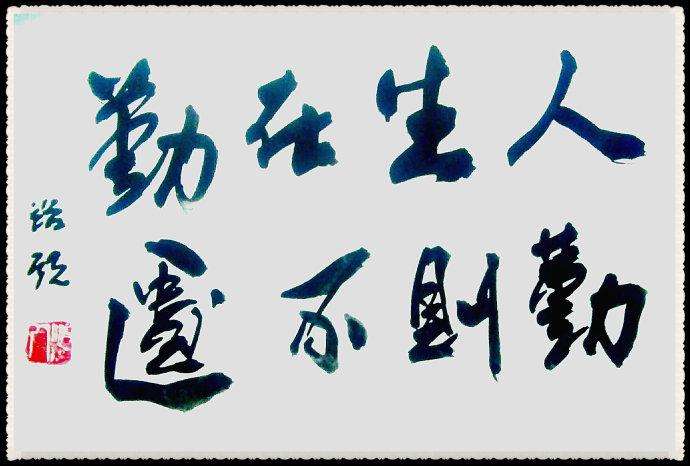 人生在勤
勤則不匱